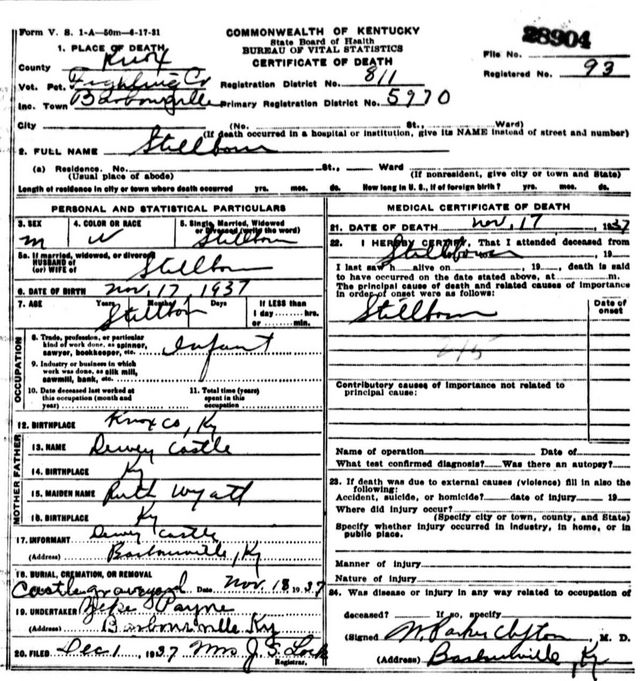 Form V. S. 1-A—50m—6-17-31
COMMONWEALTH OF KENTUCKY
State Board of Health
BUREAU OF VITAL STATISTICS
CERTIFICATE OF DEATH
28904
File No.
Registered No. 93
1. PLACE OF DEATH
County Knox
Vot. Pct. Fighting Cr
Registration District No. 811
Inc. Town Barbourville
Primary Registration District No. 5970
City (No. St., Ward)
(If death occurred in a hospital or institution, give its NAME instead of street and number)
2. FULL NAME Stillborn
(a) Residence. No. St., Ward
(Usual place of abode) (If nonresident, give city or town and State)
Length of residence in city or town where death occurred yrs. mos. ds. How long in U. S., if of foreign birth? yrs. mos. ds.
PERSONAL AND STATISTICAL PARTICULARS
3. SEX 4. COLOR OR RACE 5. Single, Married, Widowed
or Divorced (write the word)
m W Stillborn
5a. If married, widowed, or divorced
HUSBAND of
(or) WIFE of Stillborn
6. DATE OF BIRTH Nov 17 1937
7. AGE Years Months Days If LESS than
1 day hrs.
or min.
Stillborn
OCCUPATION
8. Trade, profession, or particular
kind of work done, as spinner,
sawyer, bookkeeper, etc. Infant
9. Industry or business in which
work was done, as silk mill,
sawmill, bank, etc.
10. Date deceased last worked at
this occupation (month and
year)
11. Total time (years)
spent in this
occupation
12. BIRTHPLACE Knox Co, Ky
FATHER
13. NAME Dewey Castle
14. BIRTHPLACE Ky
MOTHER
15. MAIDEN NAME Ruth Wyatt
16. BIRTHPLACE Ky
17. INFORMANT Dewey Castle
(Address) Barbourville, Ky
18. BURIAL, CREMATION, OR REMOVAL
Castle graveyard Date Nov. 18 1937
19. UNDERTAKER Payne
(Address) Barbourville Ky
20. FILED Dec 1, 1937 Mrs J. S. Lock
Registrar.
MEDICAL CERTIFICATE OF DEATH
21. DATE OF DEATH Nov. 17, 1937
22. I HEREBY CERTIFY, That I attended deceased from
Stillborn, 19
I last saw h alive on , 19 , death is said
to have occurred on the date stated above, at m.
The principal cause of death and related causes of importance
in order of onset were as follows:
Date of
onset
Stillborn
Contributory causes of importance not related to
principal cause:
Name of operation Date of
What test confirmed diagnosis? Was there an autopsy?
23. If death was due to external causes (violence) fill in also the
following:
Accident, suicide, or homicide? date of injury 19
Where did injury occur?
(Specify city or town, county, and State)
Specify whether injury occurred in industry, in home, or in
public place.
Manner of injury
Nature of injury
24. Was disease or injury in any way related to occupation of
deceased? If so, specify
(Signed M. Parker Clifton, M. D.
(Address) Barbourville, Ky